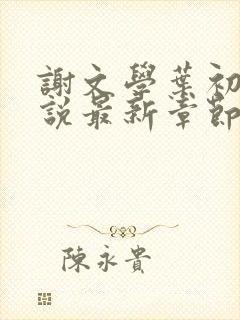 謝文學葉初
說最新章節
陳永貴